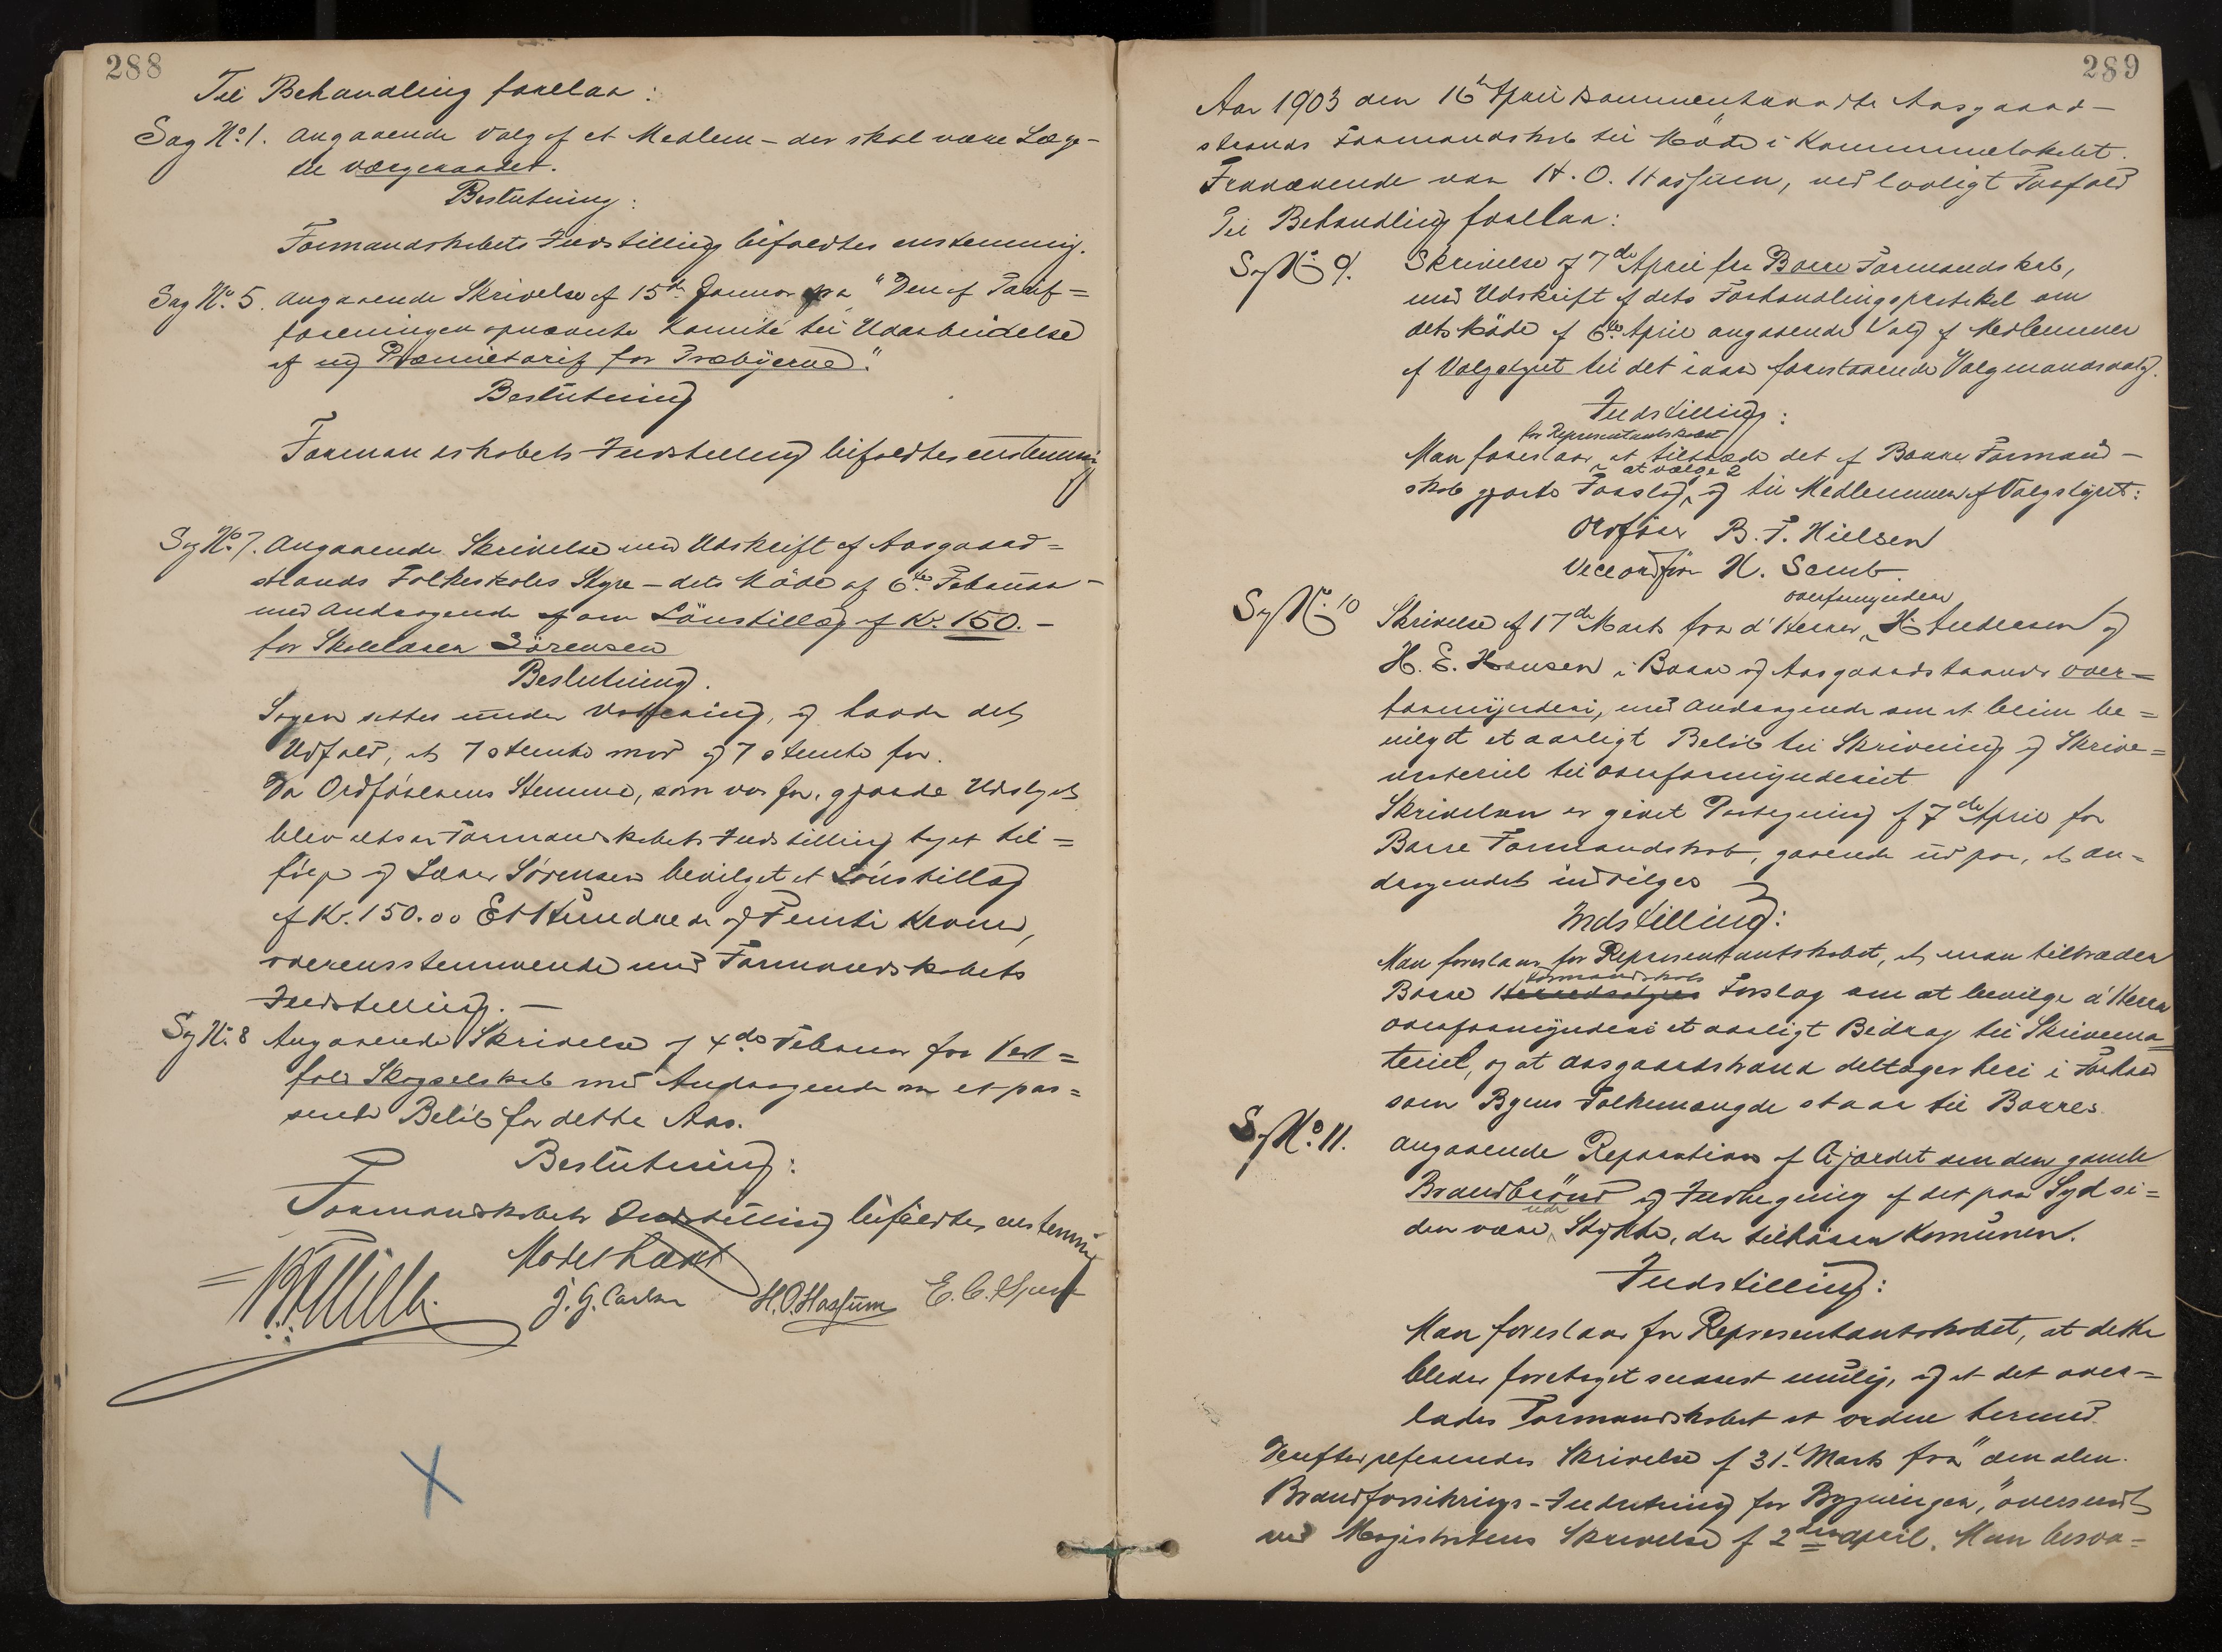 288
Til Behandling forelaa:
Sag No. 1. Angaaende Valg af et Medlem – der skal være Læge –
til Værgeraadet.
Beslutning:
Formandskabets Indstilling bifaldtes enstemmig.
Sag No. 5. Angaaende Skrivelse af 15de Januar fra "Den af Tarif=
foreningen opnævnte Komité til Udarbeidelse
af ny Præmietarif for Træbyerne".
Beslutning
Formandskabets Indstilling bifaldtes enstemmig
Sag No. 7. Angaaende Skrivelse med Udskrift af Aasgaard=
strands Folkeskoles Styre – dets Möde af 6te Februar –
med Andragende om Lönstillæg af Kr. 150. –
for Skolelærer Sörensen
Beslutning.
Sagen settes under Votering, og havde det
Udfald, at 7 stemte mod og 7 stemte for.
Da Ordförerens Stemme, som var for, gjorde Udslaget
blev altsaa Formandskabets Indstilling taget til=
fölge og Lærer Sörensen bevilget et Lönstillæg
af Kr. 150.00 Et Hundrede og Femti Kroner,
overensstemmende med Formandskabets
Indstilling. –
Sag No. 8 Angaaende Skrivelse af 4de Februar fra Vest=
fold Skogselskab med Andragende om et pas=
sende Belöb for dette Aar.
Beslutning:
Formandskabets Indstilling bifaldtes enstemmig
Mödet hævt
J. G. Carlsen H. O. Hassum E. C.
289
Aar 1903 den 16de April sammentraadte Aasgaard-
strands Formandskab til Möde i Kommunelokalet.
Fraværende var H. O. Hassum, ved lovligt Forfald
Til Behandling forelaa:
Sag No. 9. Skrivelse af 7de April fra Borre Formandskab,
med Udskrift af dets Forhandlingsprotokol om
dets Möde af 6te April angaaende Valg af Medlemmer
af Valgstyret til det iaar forestaaende Valgmandsvalg.
Indstilling:
for Representantskabet
Man foreslaar at tiltræde det af Borre Formand-
at vælge 2
skab gjorte Forslag og til Medlemmer af Valgstyret:
Ordförer B. F. Nielsen
Viceordförer K. Semb.
overformyndere
Sag No. 10 Skrivelse af 17de Marts fra d'Herrer H. Andersen og
H. E. Hansen i Borre og Aasgaardstrands over=
formynderi, med Andragende om at blive be=
vilget et aarligt Belöb til Skrivning og Skrive=
materiel til overformynderiet
Skrivelsen er givet Paategning af 7de April fra
Borre Formandskab, gaaende ud paa, at an=
dragendet indvilges
Indstilling:
Man foreslaar for Representantskabet, at man tiltræder
Formandskabs
Borre Herredsstyres Forslag om at bevilge d'Herrer
overformynderi et aarligt Bidrag til Skrivema=
teriel, og at Aasgaardstrand deltager heri i Forhold
som Byens Folkemængde staar til Borres.
Sag No. 11. Angaaende Reparation af Gjærdet om den gamle
Brandbrönd og Indhegning af det paa Sydsi=
den være Stykke, der tilhörer Komunen.
Indstilling:
Man foreslaar for Representantskabet, at dette
bliver foretaget snarest mulig, og at det over=
lades Formandskabet at ordne hermed.
Derefter refereredes Skrivelse af 31te Marts fra "den alm.
Brandforsikrings-Indretning for Bygninger," oversendt
med Magistratens Skrivelse af 2den April. Man besva=